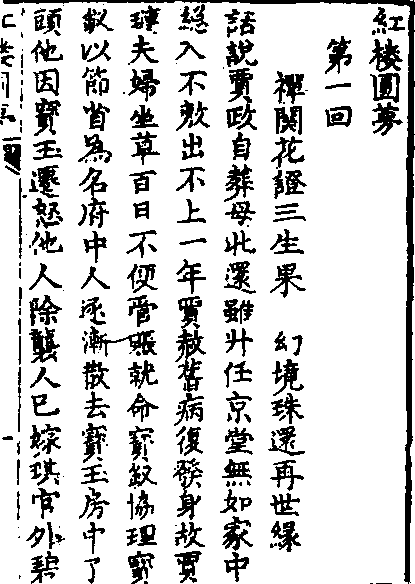 紅楼圓夢
第一回
禪関花證三生果　幻境珠還再世緣
話說賈政自葬母北還雖升任京堂無如家中
総入不敷出不上一年賈赦舊病復發身故賈
璉夫婦坐草百日不便管賬就命寶釵協理寶
釵以節省爲名府中人逐漸散去寶玉房中了
頭他因寶玉遷怒他人除襲人已嫁琪官外碧